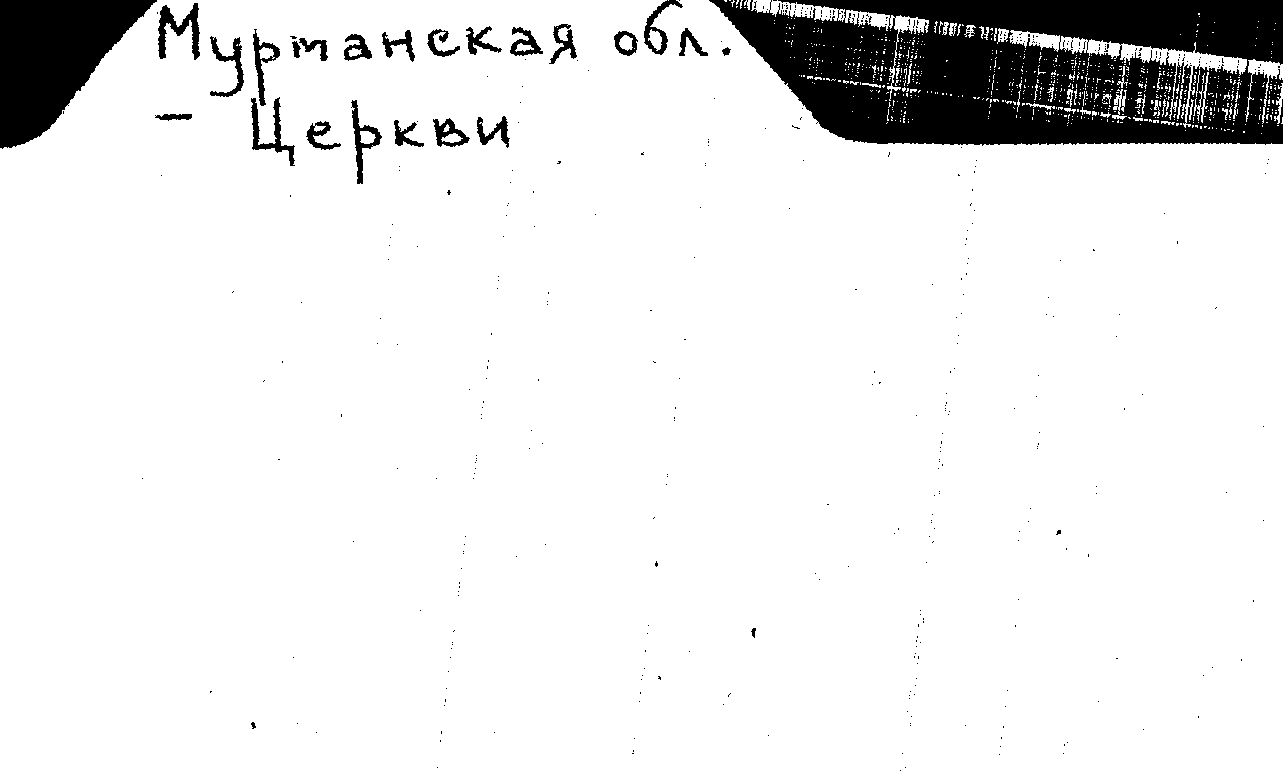 Муртанская обл.
- Церкви